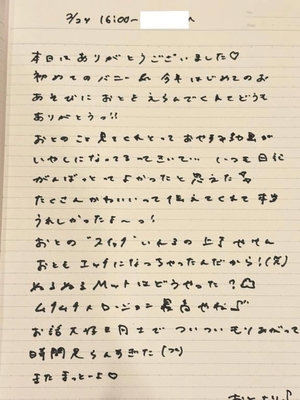 2/27 16:00~
本日はありがとうございました♡
初めてのバニーム 今年はじめてのお
あそびに おとをえらんでくれてどうも
ありがとうっ!!
おとのこと見てくれとって おやすみ効果が
いやしになってるってきいて... いつも日記
がんばっとってよかったと思えた
たくさんかわいいって伝えてくれて本当
うれしかったよ〜っ!
おとの"スイッチ"いれるの上手やけん
おともエッチになっちゃったんだから!(笑)
ぬるぬるMattはどうやった?
ムチムチ×ローション 最高やね♪
お話大好き同士でついついもりあがって
時間足らんすぎた
またまっとーよ♡